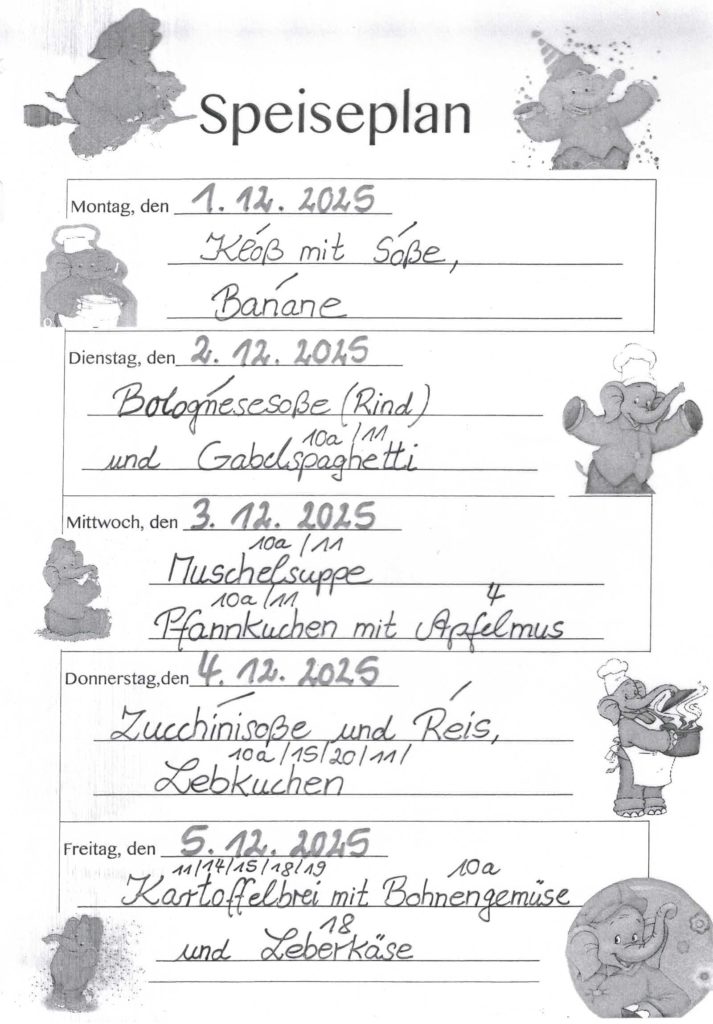 Speiseplan
Montag, den 1. 12. 2025
Kloß mit Soße,
Banane
Dienstag, den 2. 12. 2025
Bolognesesoße (Rind)
10a / 11
und Gabelspaghetti
Mittwoch, den 3. 12. 2025
10a / 11
Muschelsuppe
10a / 11 4
Pfannkuchen mit Apfelmus
Donnerstag,den 4. 12. 2025
Zucchinisoße und Reis,
10a / 15 / 20 / 11 /
Lebkuchen
Freitag, den 5. 12. 2025
11 / 14 / 15 / 18 / 19 10a
Kartoffelbrei mit Bohnengemüse
18
und Leberkäse